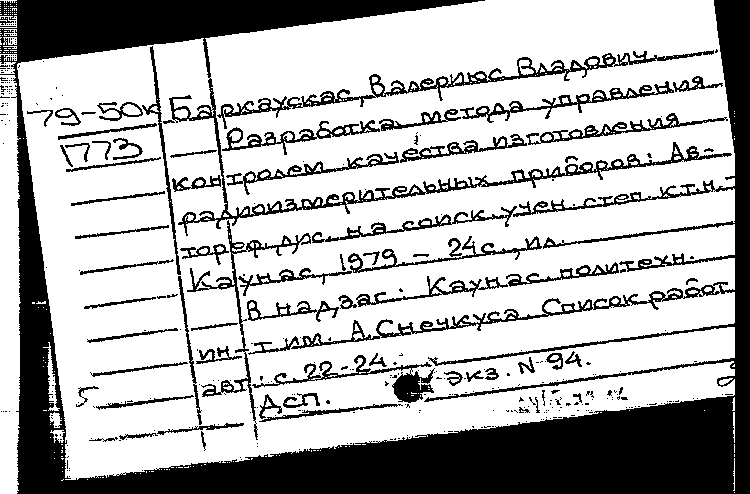 79-50к Баркаускас, Валериюс Владович.
1773 Разработка метода управления
контролем качества изготовления
радиоизмерительных приборов: Ав-
тореф. дис. на соиск. учен. степ. к.т.н. -
Каунас, 1979. - 24 с., ил.
В надзаг.: Каунас. политехн.
ин-т им. А. Снечкуса. Список работ
5 авт.: с. 22-24.
Дсп. экз. N 94.